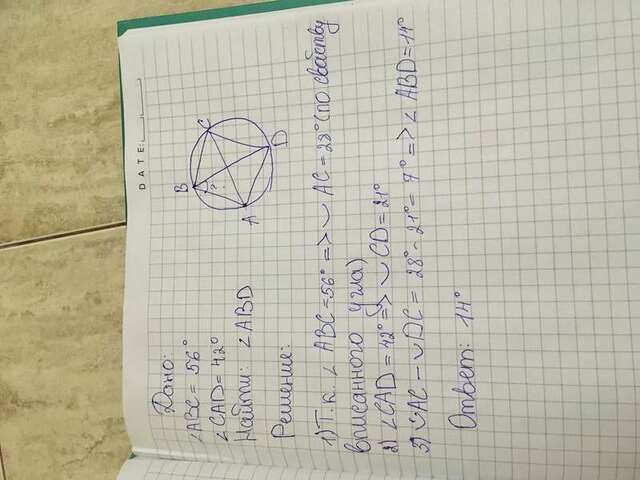 DATE:
Дано:
∠ABC = 56°
∠CAD = 42°
Найти: ∠ABD
Решение:
B
?
C
A
D
1) Т.к. ∠ABC = 56° => ◡AC = 28° (по свойству
вписанного угла)
2) ∠CAD = 42° => ◡CD = 21°
3) ◡AC - ◡DC = 28° - 21° = 7° => ∠ABD = 14°
Ответ: 14°